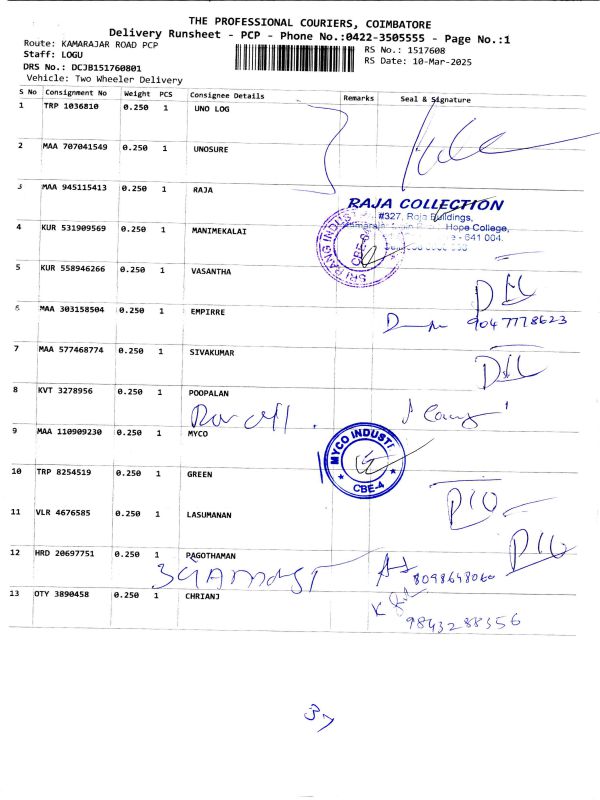 THE PROFESSIONAL COURIERS, COIMBATORE
Delivery Runsheet - PCP - Phone No.:0422-3505555 - Page No.:1
Route: KAMARAJAR ROAD PCP
Staff: LOGU
DRS No.: DCJB151760801
Vehicle: Two Wheeler Delivery
RS No.: 1517608
RS Date: 10-Mar-2025
S No Consignment No Weight PCS Consignee Details Remarks Seal & Signature
1 TRP 1036810 0.250 1 UNO LOG
2 MAA 707041549 0.250 1 UNOSURE
3 MAA 945115413 0.250 1 RAJA
RAJA COLLECTION
#327, Roja Buildings,
Hope College,
- 641 004.
SRI RANG INDUST
CBE-
4 KUR 531909569 0.250 1 MANIMEKALAI
5 KUR 558946266 0.250 1 VASANTHA
6 MAA 303158504 0.250 1 EMPIRRE
9047778623
7 MAA 577468774 0.250 1 SIVAKUMAR
8 KVT 3278956 0.250 1 POOPALAN
9 MAA 110909230 0.250 1 MYCO
MYCO INDUSTRI
CBE-4
10 TRP 8254519 0.250 1 GREEN
11 VLR 4676585 0.250 1 LASUMANAN
12 HRD 20697751 0.250 1 PAGOTHAMAN
8098648060
13 OTY 3890458 0.250 1 CHRIANJ
9843288356